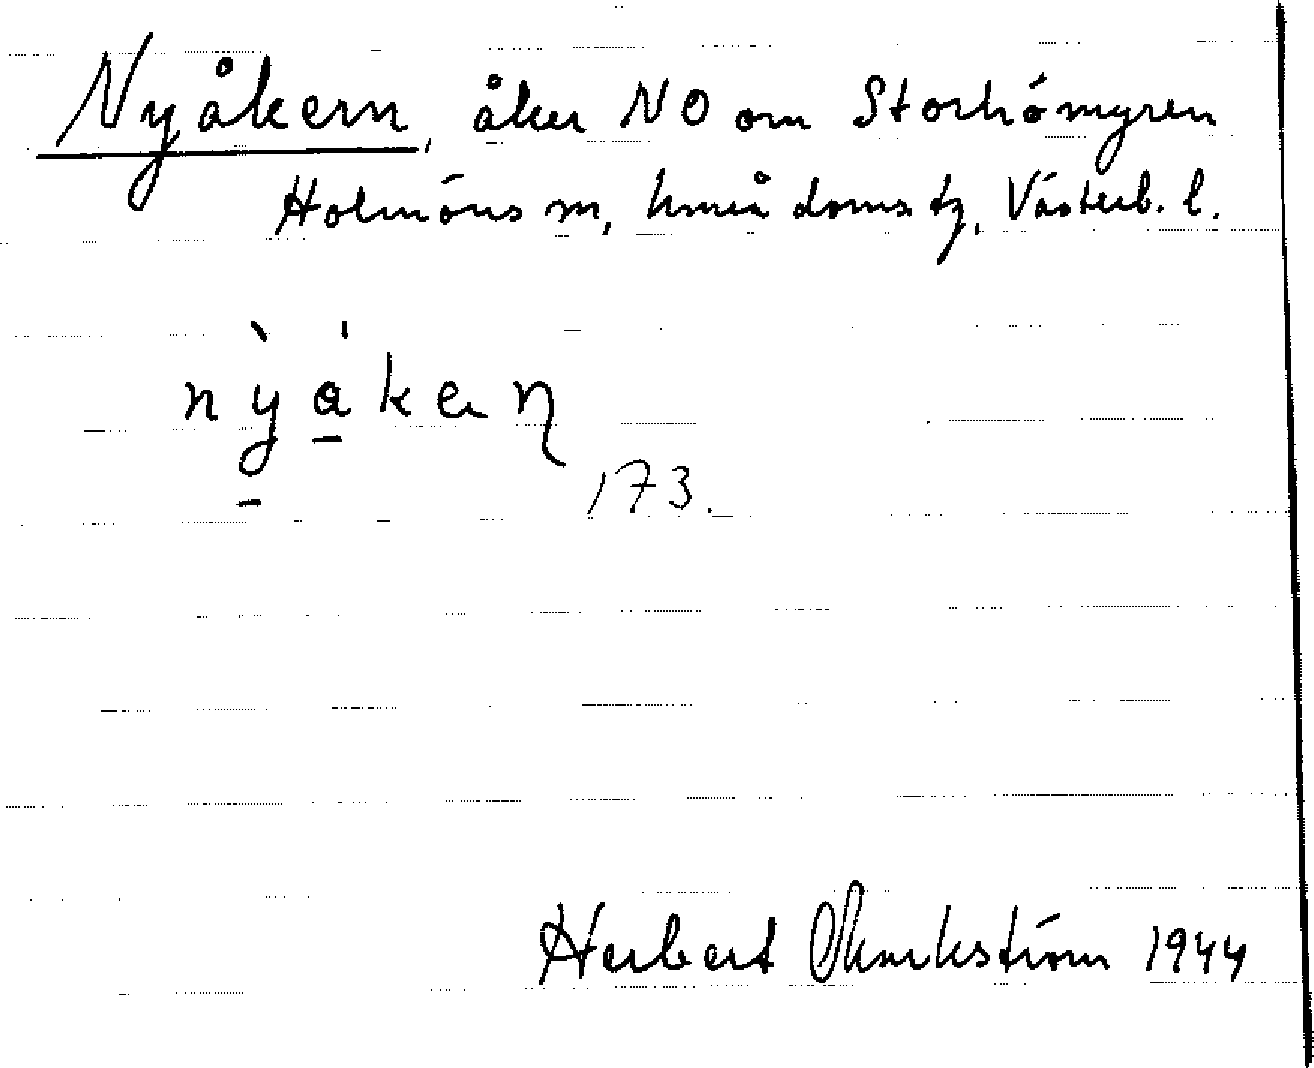 Nyåkern, åker NO om Storhömyren
Holmöns sn, Umeå doms tg, Västerb. l.
nỳákeη
173.
Herbert Markström 1944